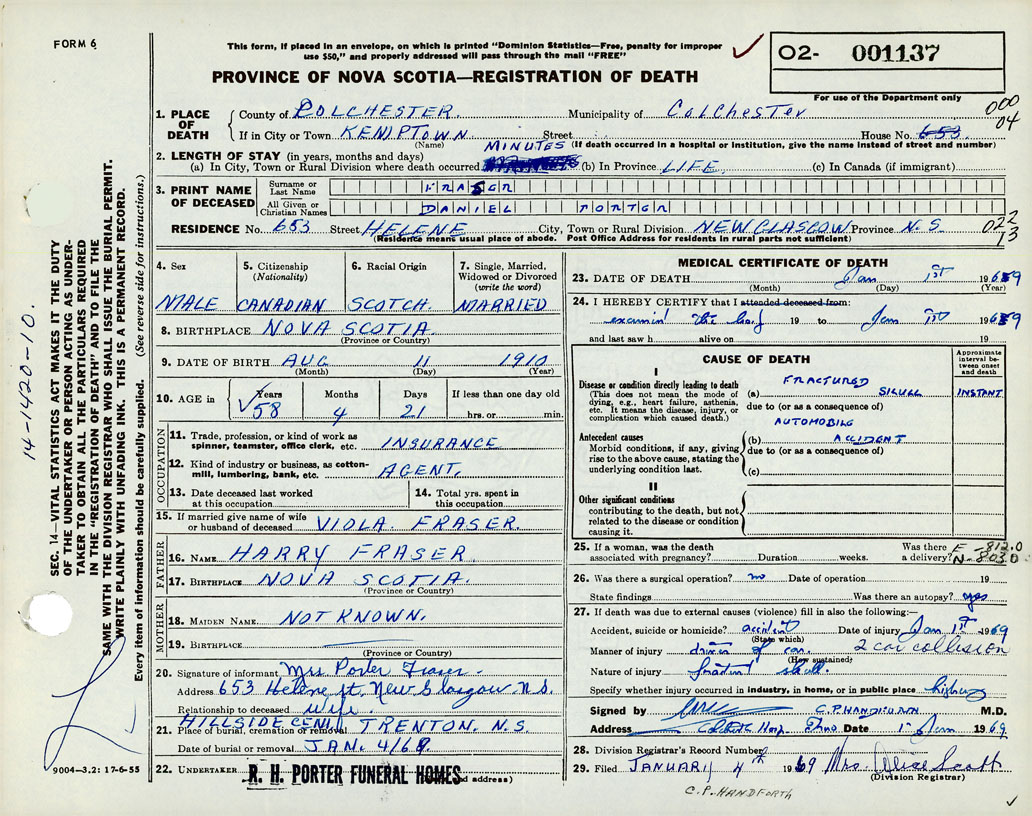 FORM 6
This form, if placed in an envelope, on which is printed "Dominion Statistics—Free, penalty for improper
use $50," and properly addressed will pass through the mail "FREE"
02- 001137
PROVINCE OF NOVA SCOTIA—REGISTRATION OF DEATH
For use of the Department only
000
04
1. PLACE OF DEATH
County of COLCHESTER. Municipality of Colchester
If in City or Town KEMPTOWN Street House No. 653.
(Name) MINUTES (If death occurred in a hospital or institution, give the name instead of street and number)
2. LENGTH OF STAY (in years, months and days)
(a) In City, Town or Rural Division where death occurred (b) In Province LIFE. (c) In Canada (if immigrant)
3. PRINT NAME OF DECEASED
Surname or Last Name FRASER
All Given or Christian Names DANIEL PORTER
022
13
RESIDENCE No. 653 Street HELENE City, Town or Rural Division NEW GLASGOW Province N.S
(Residence means usual place of abode. Post Office Address for residents in rural parts not sufficient)
4. Sex
MALE
5. Citizenship
(Nationality)
CANADIAN
6. Racial Origin
SCOTCH.
7. Single, Married,
Widowed or Divorced
(write the word)
MARRIED
8. BIRTHPLACE NOVA SCOTIA
(Province or Country)
9. DATE OF BIRTH AUG 11 1910
(Month) (Day) (Year)
10. AGE in
Years 58
Months 4
Days 21
If less than one day old
hrs. or min.
OCCUPATION
11. Trade, profession, or kind of work as
spinner, teamster, office clerk, etc. INSURANCE
12. Kind of industry or business, as cotton-
mill, lumbering, bank, etc. AGENT.
13. Date deceased last worked
at this occupation
14. Total yrs. spent in
this occupation
15. If married give name of wife
or husband of deceased VIOLA FRASER.
FATHER
16. NAME HARRY FRASER
17. BIRTHPLACE NOVA SCOTIA.
(Province or Country)
MOTHER
18. MAIDEN NAME NOT KNOWN.
19. BIRTHPLACE
(Province or Country)
20. Signature of informant Mrs Porter Fraser
Address 653 Helene st. New Glasgow N.S.
Relationship to deceased Wife.
HILLSIDE CEM. TRENTON, N.S
21. Place of burial, cremation or removal
Date of burial or removal JAN. 4/69
22. UNDERTAKER R. H. PORTER FUNERAL HOMES
d address)
MEDICAL CERTIFICATE OF DEATH
23. DATE OF DEATH Jan 1st 1969
(Month) (Day) (Year)
24. I HEREBY CERTIFY that I attended deceased from:
19 to Jan 1st 1969
and last saw h alive on 19
CAUSE OF DEATH
Approximate
interval be-
tween onset
and death
I
Disease or condition directly leading to death
(This does not mean the mode of
dying, e.g., heart failure, asthenia,
etc. It means the disease, injury, or
complication which caused death.)
FRACTURED
(a) SKULL INSTANT
due to (or as a consequence of)
AUTOMOBILE
Antecedent causes
Morbid conditions, if any, giving
rise to the above cause, stating the
underlying condition last.
(b) ACCIDENT
due to (or as a consequence of)
(c)
II
Other significant conditions
contributing to the death, but not
related to the disease or condition
causing it.
25. If a woman, was the death
associated with pregnancy? Duration weeks. Was there
a delivery?
E-812.0
N-803.0
26. Was there a surgical operation? no Date of operation 19
State findings Was there an autopsy? yes
27. If death was due to external causes (violence) fill in also the following:—
Accident, suicide or homicide? accident Date of injury Jan 1st 1969
(State which)
Manner of injury driver of car. 2 car collision
(How sustained)
Nature of injury skull.
Specify whether injury occurred in industry, in home, or in public place highway
Signed by C.P. HANDFORTH M.D.
Address Colchester Hosp. Truro Date 1st Jan 1969.
28. Division Registrar's Record Number
29. Filed JANUARY 4th 1969 Mrs. Alice Scott
(Division Registrar)
C.P. HANDFORTH
14-1420-10.
SEC. 14—VITAL STATISTICS ACT MAKES IT THE DUTY
OF THE UNDERTAKER OR PERSON ACTING AS UNDER-
TAKER TO OBTAIN ALL THE PARTICULARS REQUIRED
IN THE "REGISTRATION OF DEATH" AND TO FILE THE
SAME WITH THE DIVISION REGISTRAR WHO SHALL ISSUE THE BURIAL PERMIT.
WRITE PLAINLY WITH UNFADING INK. THIS IS A PERMANENT RECORD.
Every item of information should be carefully supplied. (See reverse side for instructions.)
9004-3.2: 17-6-55